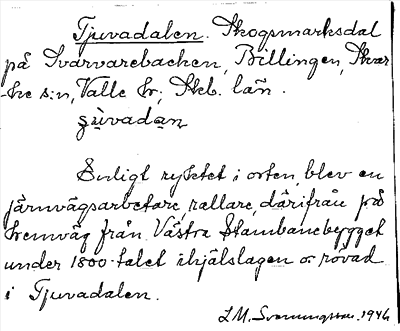 Tjuvadalen. Skogsmarksdal
på Svarvarebacken, Billingen, Skar
-ke s:n, Valle hr; Skb. län.
şùvadạn
Enligt ryktet i orten blev en
järnvägsarbetare, rallare, därifrån på
hemväg från Västra Stambanebygget
under 1800-talet ihjälslagen o. rövad
i Tjuvadalen.
L.M. Svenungsson. 1946